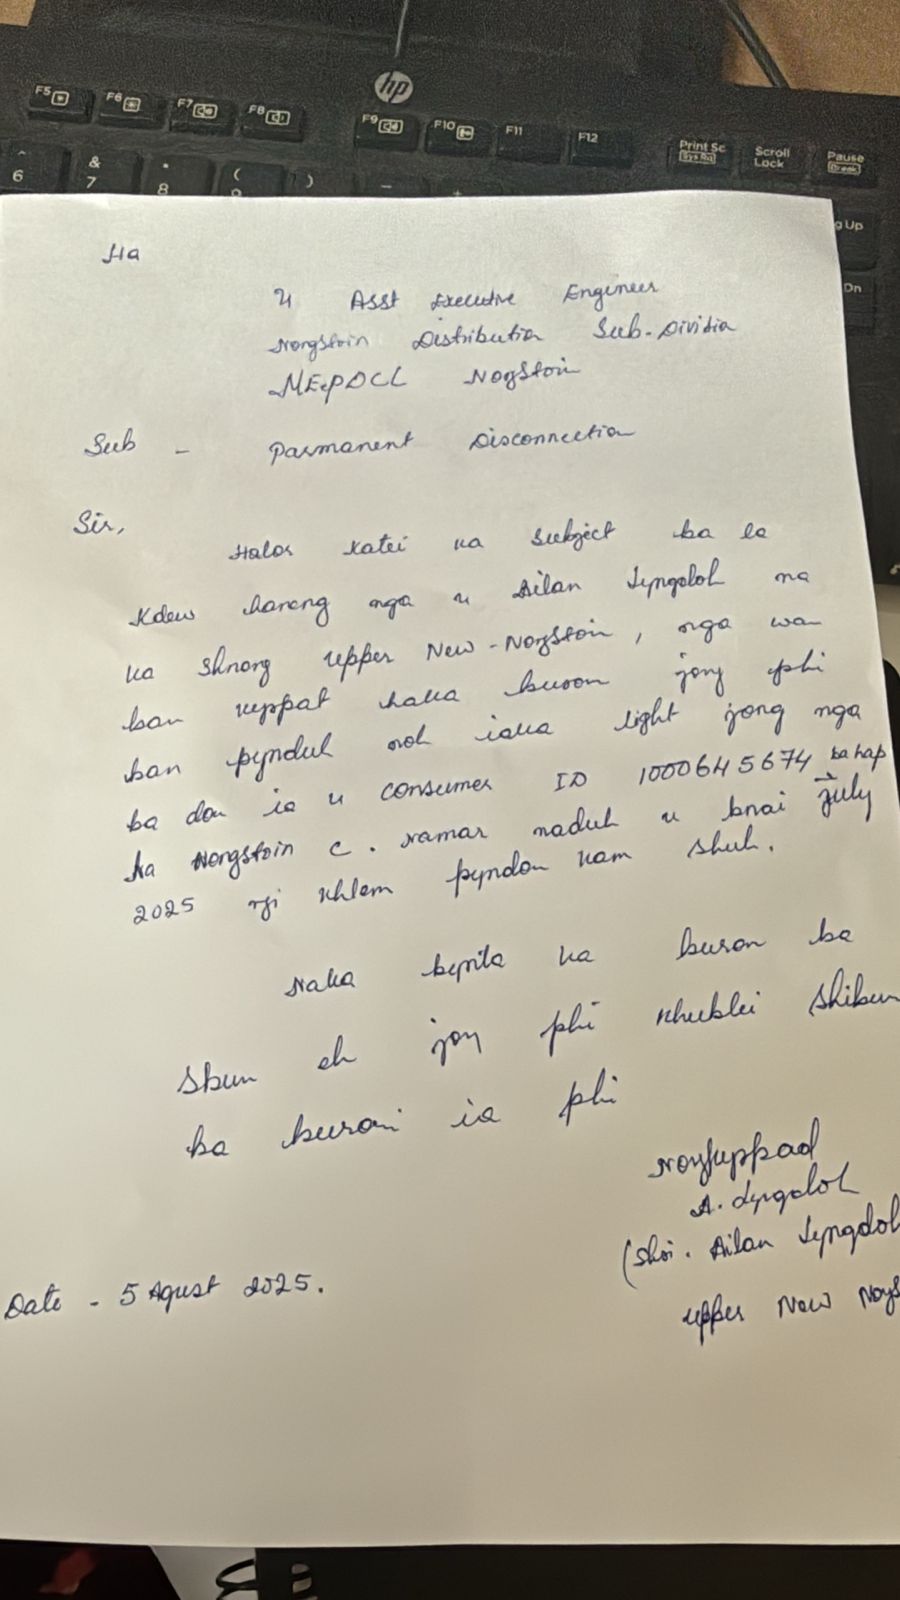 F5 F6 F7 F8 hp F9 F10 F11 F12 Print Sc Sys Rq Scroll Lock Pause Break
^ 6 & 7 * 8 ( 9 ) - +
g Up
Dn
Ha
U Asst Executive Engineer
Nongstoin Distribution Sub-Dividia
MEePDCL Noystoin
Sub - Parmanent Disconnection
Sir,
Halor katei ka subject ba la
kdew haneng nga u Ailan Lyngdoh na
ka shnong upper New-Noystoin, nga wan
ban kyppat haka burom jong phi
ban pynduh noh iaka light jong nga
ba don ia u consumer ID 1000645674 ba hap
ha Nongstoin C. Namar naduh u bnai July
2025 ngi khlem pyndon kam shuh.
Naka bynta ka burom ba
Shun eh jong phi khublei shibun
ba burom ia phi
Noykyppad
A. Lyngdoh
(Shri. Ailan Lyngdoh
upper New Noys
Date - 5 Agust 2025.